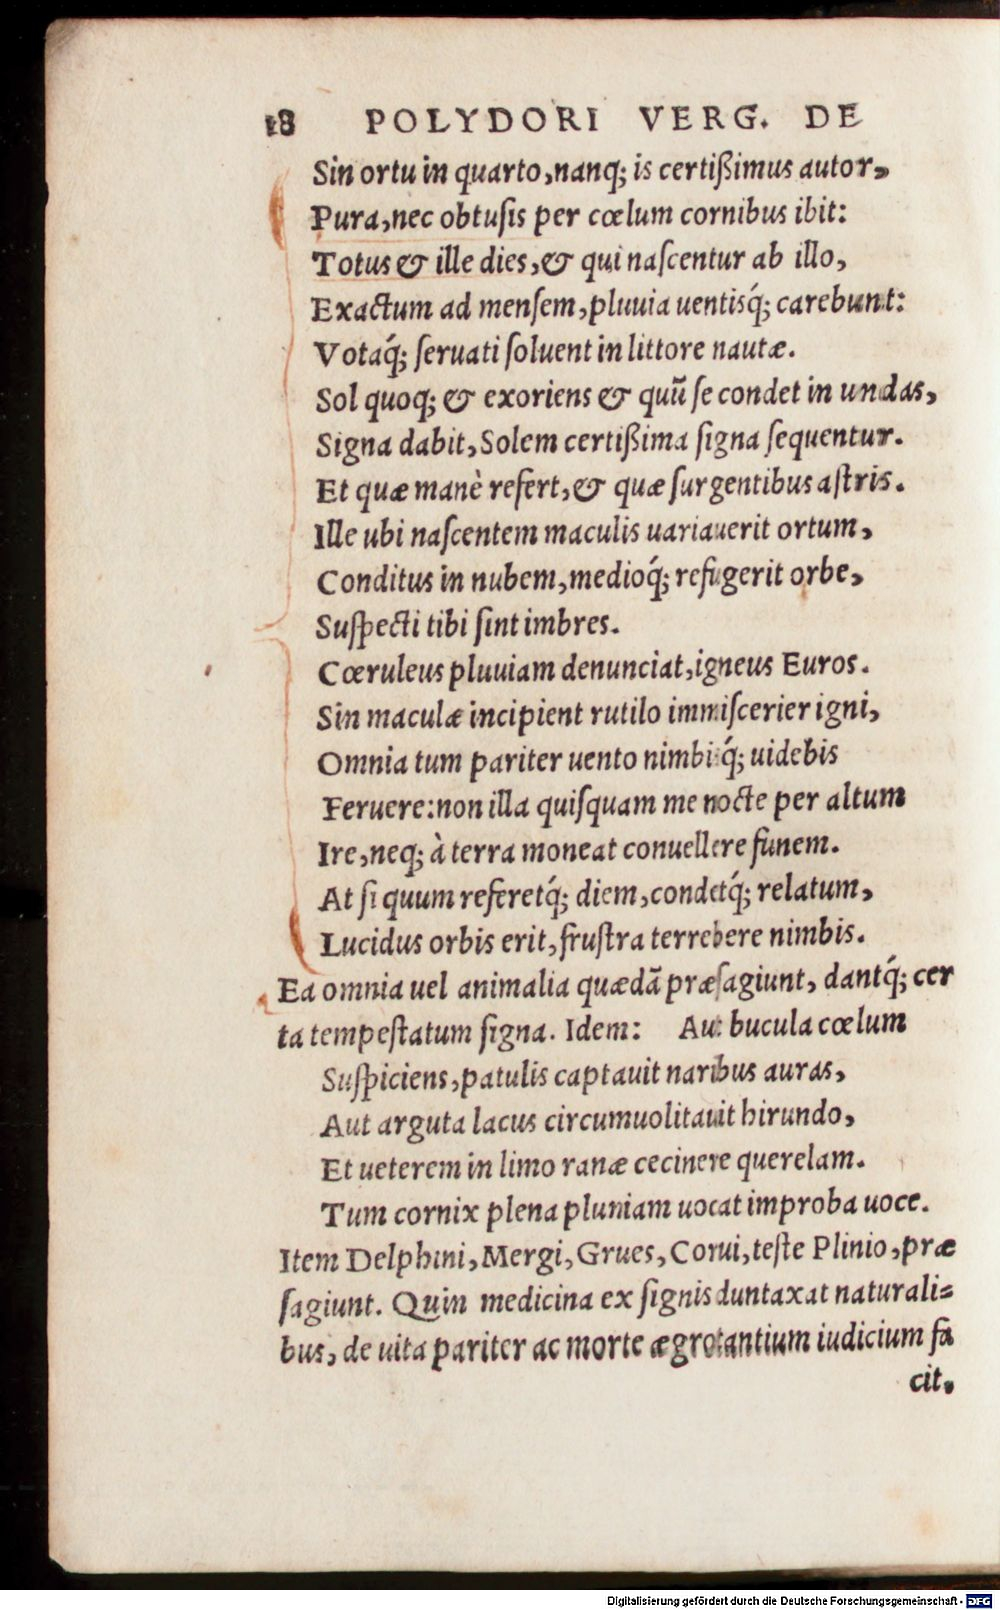 18 POLYDORI VERG. DE
Sin ortu in quarto, nanq; is certißimus autor,
Pura, nec obtuſis per cœlum cornibus ibit:
Totus & ille dies, & qui naſcentur ab illo,
Exactum ad menſem, pluuia uentisq́; carebunt:
Votaq́; ſeruati ſoluent in littore nautæ.
Sol quoq; & exoriens & quũ ſe condet in undas,
Signa dabit, Solem certißima ſigna ſequentur.
Et quæ manè refert, & quæ ſurgentibus aſtris.
Ille ubi naſcentem maculis uariauerit ortum,
Conditus in nubem, medioq́; refugerit orbe,
Suſpecti tibi ſint imbres.
Cœruleus pluuiam denunciat, igneus Euros.
Sin maculæ incipient rutilo immiſcerier igni,
Omnia tum pariter uento nimbisq́; uidebis
Feruere: non illa quiſquam me nocte per altum
Ire, neq; à terra moneat conuellere funem.
At ſi quum referetq́; diem, condetq́; relatum,
Lucidus orbis erit, fruſtra terrebere nimbis.
Ea omnia uel animalia quædã præſagiunt, dantq́; cer
ta tempeſtatum ſigna. Idem: Aut bucula cœlum
Suſpiciens, patulis captauit naribus auras,
Aut arguta lacus circumuolitauit hirundo,
Et ueterem in limo ranæ cecinere querelam.
Tum cornix plena pluniam uocat improba uoce.
Item Delphini, Mergi, Grues, Corui, teſte Plinio, præ
ſagiunt. Quin medicina ex ſignis duntaxat naturali=
bus, de uita pariter ac morte ægrotantium iudicium fa
cit,
Digitalisierung gefördert durch die Deutsche Forschungsgemeinschaft - DFG